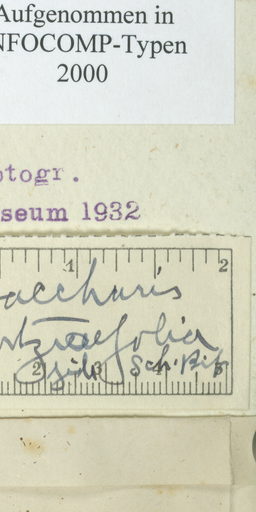 Aufgenommen in
NFOCOMP-Typen
2000
otogr.
seum 1932
1 2
accharis
folia
2 3 4
Sch. Bip